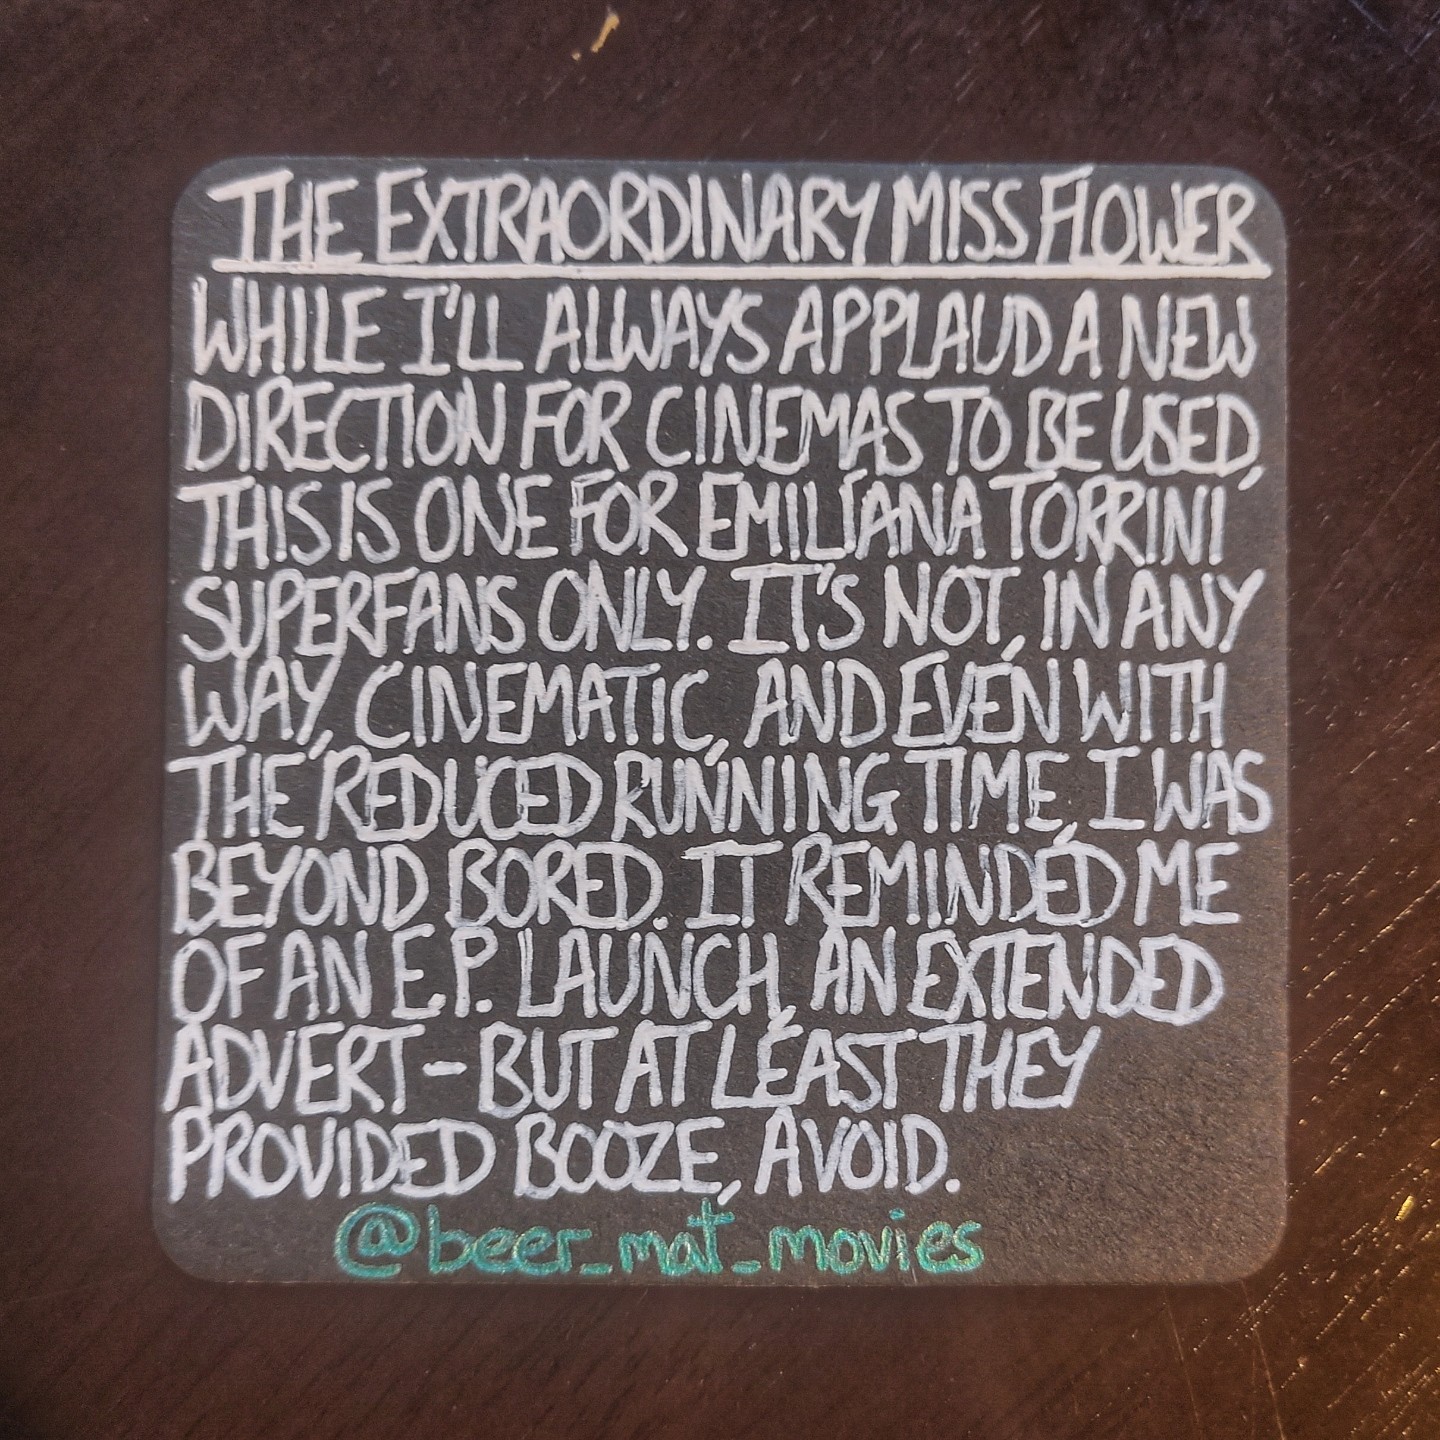 THE EXTRAORDINARY MISS FLOWER
WHILE I'LL ALWAYS APPLAUD A NEW
DIRECTION FOR CINEMAS TO BE USED,
THIS IS ONE FOR EMILÍANA TORRINI
SUPERFANS ONLY. IT'S NOT, IN ANY
WAY, CINEMATIC, AND EVEN WITH
THE REDUCED RUNNING TIME, I WAS
BEYOND BORED. IT REMINDED ME
OF AN E.P. LAUNCH, AN EXTENDED
ADVERT - BUT AT LEAST THEY
PROVIDED BOOZE, AVOID.
@beer_mat_movies